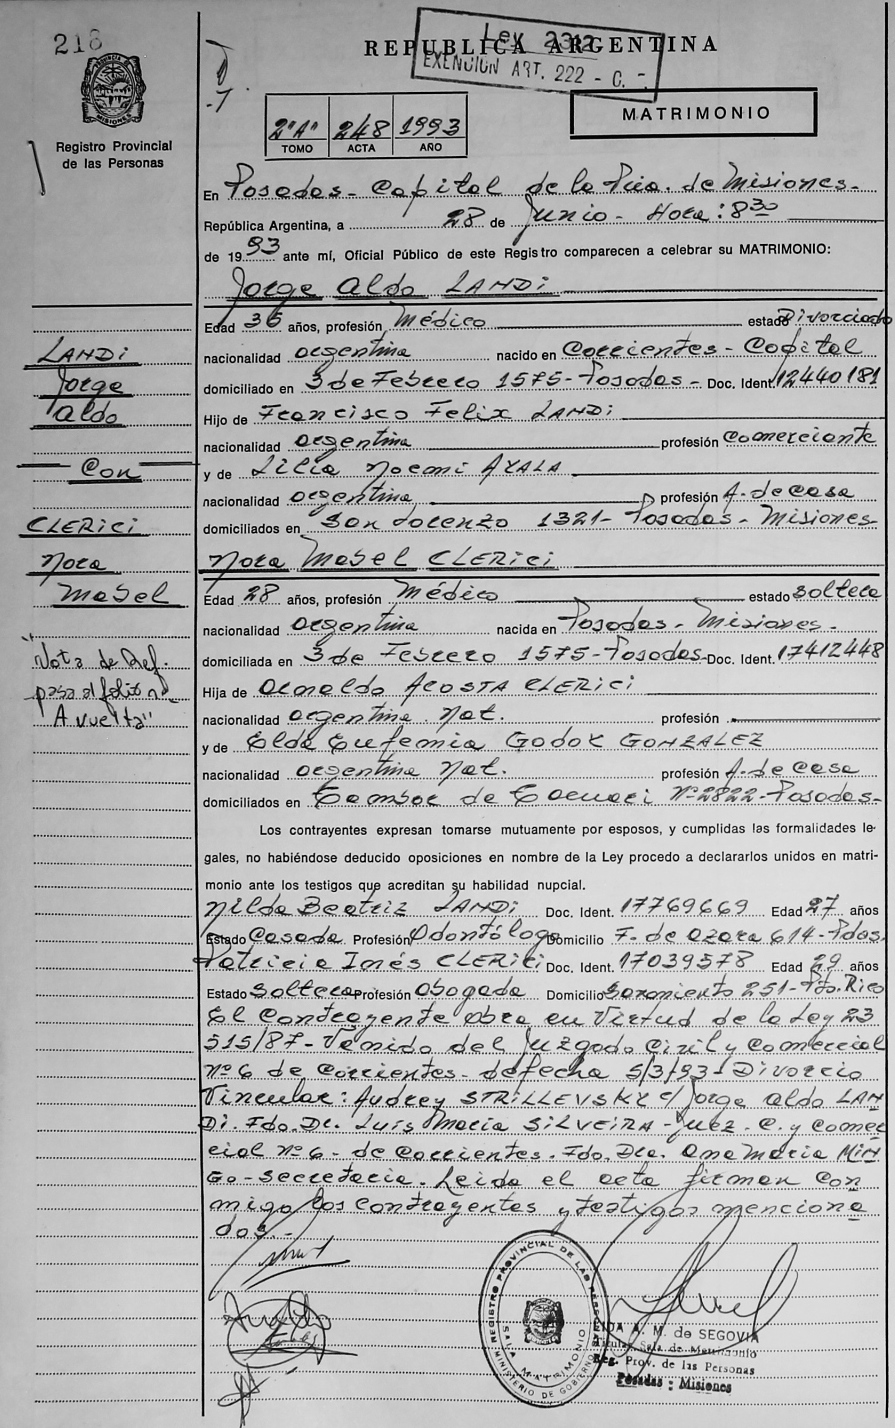 218
Ley 2312
EXENCION ART. 222 - C.
REPUBLICA ARGENTINA
MATRIMONIO
2"A" 248 1993
TOMO ACTA AÑO
PROVINCIA DE MISIONES
Registro Provincial
de las Personas
En Posadas - Capital de la Pcia. de Misiones -
República Argentina, a 28 de Junio - Hora: 8 30
de 1993 ante mí, Oficial Público de este Registro comparecen a celebrar su MATRIMONIO:
Jorge Aldo LANDI
Edad 36 años, profesión Médico estado Divorciado
nacionalidad argentina nacido en Corrientes - Capital
domiciliado en 3 de Febrero 1575 - Posadas - Doc. Ident. 12440181
Hijo de Francisco Felix LANDI
nacionalidad argentina profesión Comerciante
y de Lilia Noemi AYALA
nacionalidad argentina profesión A. de casa
domiciliados en San Lorenzo 1321 - Posadas - Misiones
Nora Mabel CLERICI
Edad 28 años, profesión Médico estado soltera
nacionalidad argentina nacida en Posadas - Misiones -
domiciliada en 3 de Febrero 1575 - Posadas - Doc. Ident. 17412448
Hija de Arnaldo ACOSTA CLERICI
nacionalidad argentina Nat. profesión
y de Elda Eufemia GODOY GONZALEZ
nacionalidad argentina Nat. profesión A. de casa
domiciliados en Tambor de Tacuarí Nº 2822 - Posadas -
Los contrayentes expresan tomarse mutuamente por esposos, y cumplidas las formalidades le-
gales, no habiéndose deducido oposiciones en nombre de la Ley procedo a declararlos unidos en matri-
monio ante los testigos que acreditan su habilidad nupcial.
Nilda Beatriz LANDI Doc. Ident. 17769669 Edad 27 años
Estado Casada Profesión Odontóloga Domicilio F. de Azara 614 - Pdas.
Patricia Inés CLERICI Doc. Ident. 17039578 Edad 29 años
Estado soltera Profesión abogada Domicilio Sarmiento 251 - Pto. Rico
El Contrayente obra en Virtud de la Ley 23
515/87 - Venido del Juzgado Civil y Comercial
Nº 6 de Corrientes - de fecha 5/3/93 - Divorcio
Vincular: Audrey STRILLEVSKY c/ Jorge Aldo LAN
DI. Fdo. Dr. Luis Maria SILVEIRA - Juez - C. y Comer
cial Nº 6 - de Corrientes. Fdo. Dra. Ana Maria MIN
GO - Secretaria. Leida el acta firman con
migo los contrayentes y testigos menciona
dos. -
LANDI
Jorge
Aldo
Con
CLERICI
Nora
Mabel
"Nota de Ref.
pasa al folio nº
A vuelta"
REGISTRO PROVINCIAL DE LAS PERSONAS
SALA MATRIMONIO
MINISTERIO DE GOBIERNO
A. M. de SEGOVIA
Sala de Matrimonio
Reg. Prov. de las Personas
Posadas : Misiones